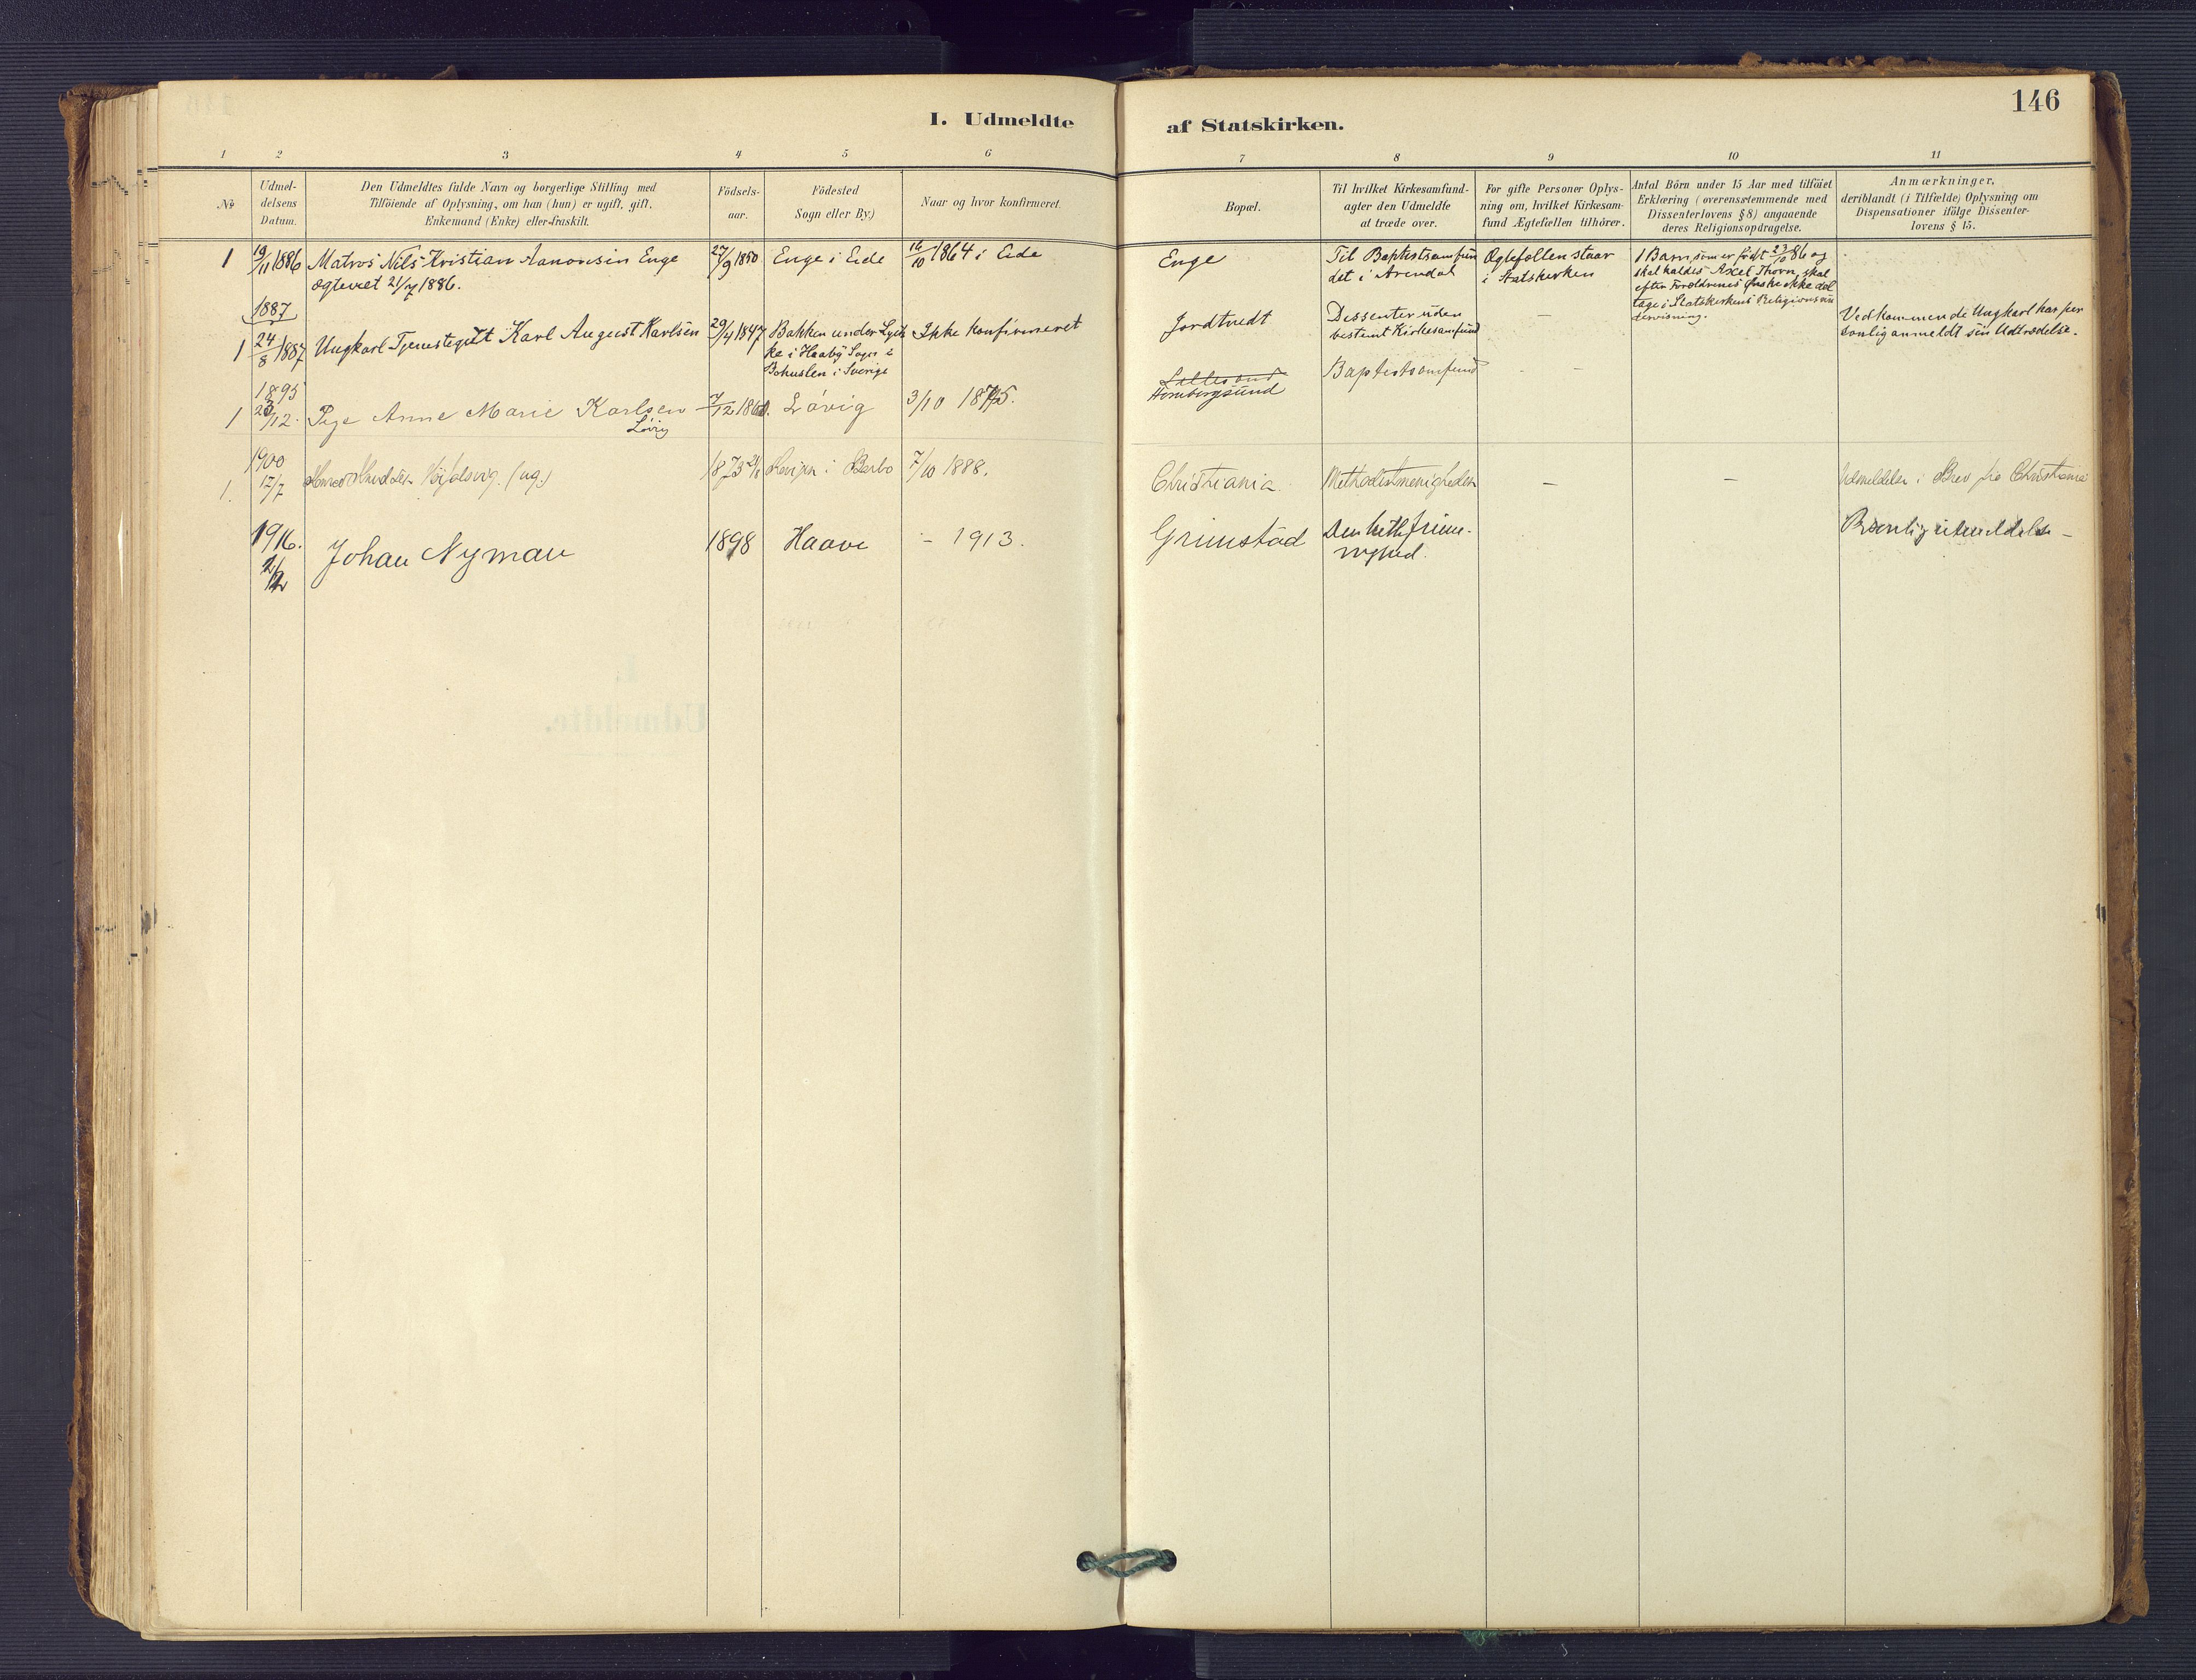 146
I. Udmeldte af Statskirken.
1 2 3 4 5 6 7 8 9 10 11
№
Udmel-
delsens
Datum.
Den Udmeldtes fulde Navn og borgerlige Stilling med
Tilföiende af Oplysning, om han (hun) er ugift, gift,
Enkemand (Enke) eller fraskilt.
Födsels-
aar.
Födested
Sogn eller By.)
Naar og hvor konfirmeret.
Bopæl.
Til hvilket Kirkesamfund-
agter den Udmeldte
at træde over.
For gifte Personer Oplys-
ning om, hvilket Kirkesam-
fund Ægtefællen tilhörer.
Antal Börn under 15 Aar med tilföiet
Erklæring (overensstemmende med
Dissenterlovens § 8) angaaende
deres Religionsopdragelse.
Anmærkninger,
deriblandt (i Tilfælde) Oplysning om
Dispensationer ifölge Dissenter-
lovens § 15.
1
19/11 1886
Matros Nils Kristian Aanonsen Enge
ægteviet 21/7 1886.
27/9 1850
Enge i Eide
16/10 1864 i Eide
Enge
Til Baptistsamfun
det i Arendal
Ægtefællen staar
i Statskirken
1 Barn, som er födt 23/10 86 og
skal kaldes Axel Thorn, skal
efter Forældrenes Ønske ikke del
tage i Statskirkens Religionsun
dervisning.
1887
1
24/8 1887
Ungkarl Tjenestegut Karl August Karlsen
29/4 1847
Bakken under
ke i Haaby Sogn i
Bohuslen i Sverige
Ikke konfirmeret
Jordtvedt
Dissenter uden
bestemt Kirkesamfund
–
Vedkommende Ungkarl har per
sonlig anmeldt sin Udtrædelse.
1895
1
23/12.
Pige Anne Marie Karlsen
Lövig
7/12 1860.
Lövig
3/10 1875.
Lillesand
Homborgsund
Baptistsamfund
– –
1900
1.
17/7
Knudsen (ug.)
1873
i Barbo
7/10 1888.
Christiania.
Methodistmenigheden
–
–
Udmeldelse i Brev fra Christiania
1916.
Johan Nyman
1898
Haave
– 1913.
Grimstad
Den luth frime-
nighed.
utmeldelse –
I.
Udmeldte.